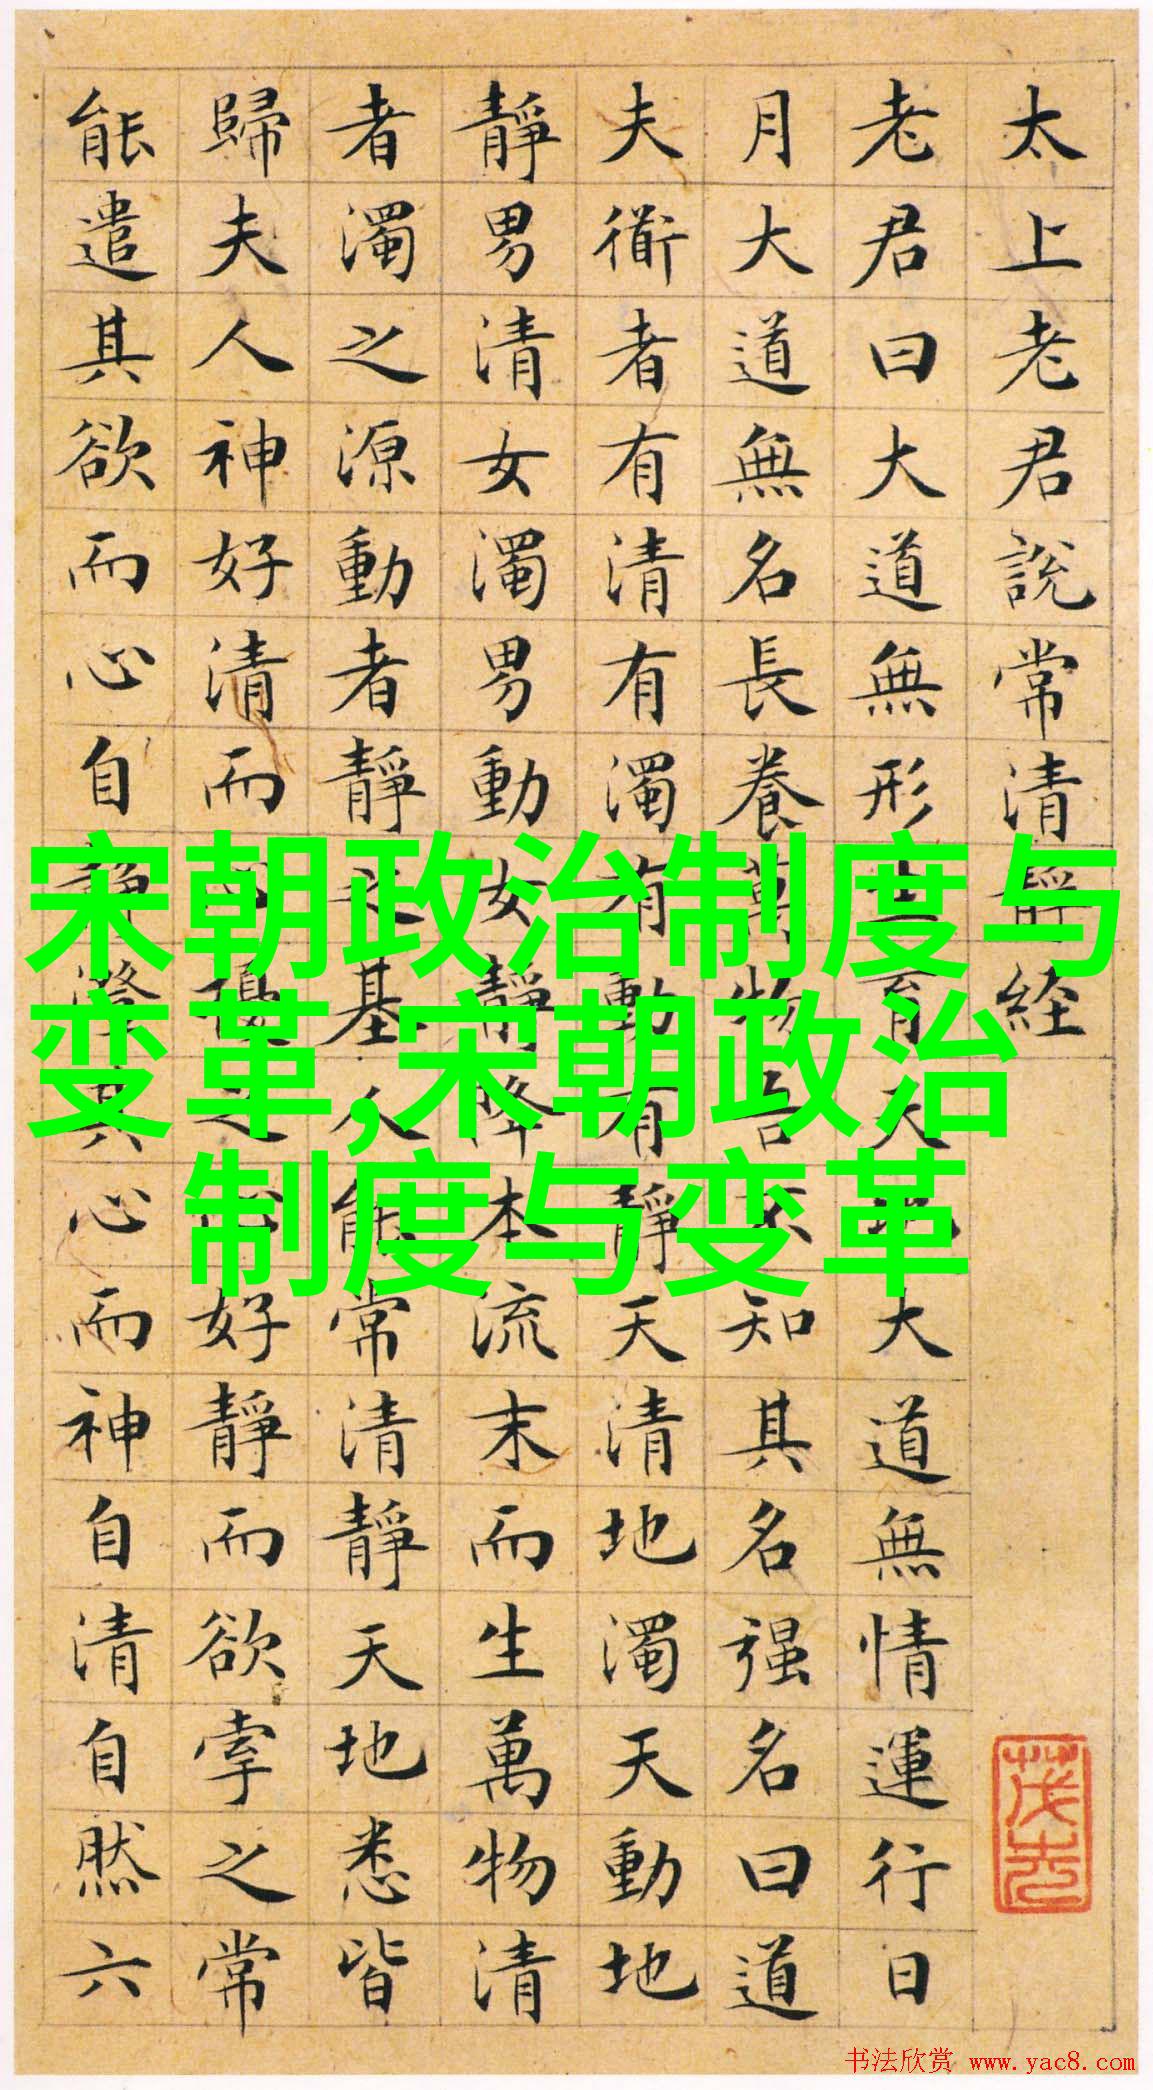 太上老君說常清靜経
老君曰大道無形生育天地大道無情運行日
月大道無名長養萬物吾不知其名强名曰道
夫衜者有清有濁有動有靜天清地濁天動地
靜男清女濁男動女靜降本流末而生萬物清
者濁之源動者靜之基人能常清靜天地悉皆
歸夫人神好清而心擾之心好靜而欲牽之常
能遣其欲而心自靜澄其心而神自清自然六
宋朝政治制度与
变革,宋朝政治
制度与变革
书法欣赏 www.yac8.com